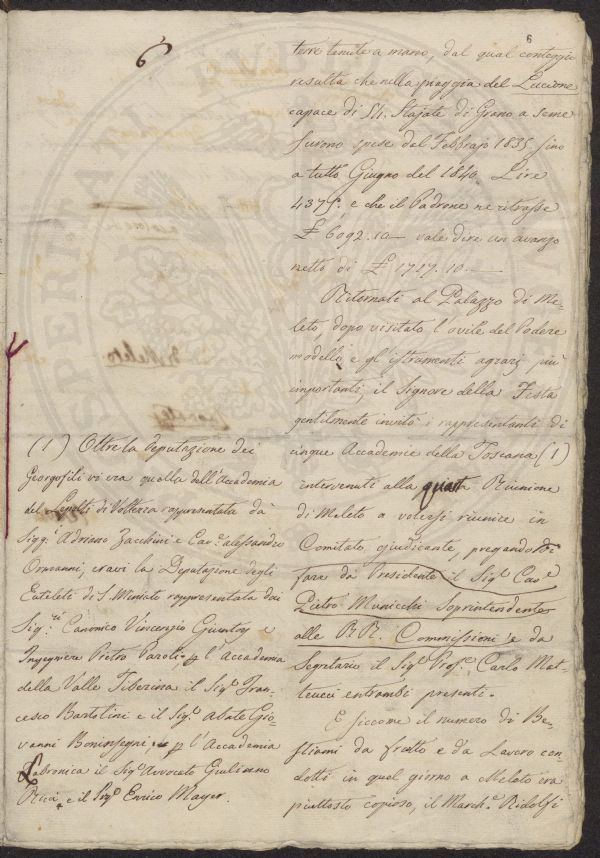 6
6
terre tenute a mano, dal qual conteggio
risulta che nella piaggia del Luccione
capace di St. Stajate di Grano a seme
furono spese dal Febbrajo 1835 fino
a tutto Giugno del 1840. Lire
4375, e che il Padrone ne ritrasse
£ 6092. 10 — vale dire un avanzo
netto di £ 1717. 10 —
Ritornati al Palazzo di Me-
leto, dopo visitato l'ovile del Podere
modello, e gl'istrumenti agrarj più
importanti, il Signore della Festa
gentilmente invitò i rappresentanti di
cinque Accademie della Toscana (1)
intervenuti alla quarta Riunione
di Meleto a volersi riunire in
Comitato giudicante, pregando di
fare da Presidente il Sigr. Cave
Pietro Municchi Soprintendente
alle RR. Commissioni e da
Segretario il Sigr. Profr. Carlo Mat-
teucci entrambi presenti.
E siccome il numero di Be-
stiami da frutto e da Lavoro con-
dotti in quel giorno a Meleto era
piuttosto copioso, il Marche. Ridolfi
(1) Oltre la deputazione dei
Georgofili vi era quella dell'Accademia
dei Sepolti di Volterra rappresentata da
Sigg. Adriano Zacchini e Cav. Alessandro
Ormanni; eravi la Deputazione degli
Euteleti di S. Miniato rappresentata dai
Sigri Canonico Vincenzio e
Ingegnere Pietro Paroli. p l'Accademia
della Valle Tiberina il Sigr. Fran-
cesco Bartolini e il Sigr. Abate Gio-
vanni Boninsegni, e p l'Accademia
Labronica il Sigr. Avvocato Giuliano
Ricci, e il Sigr. Enrico Mayer.